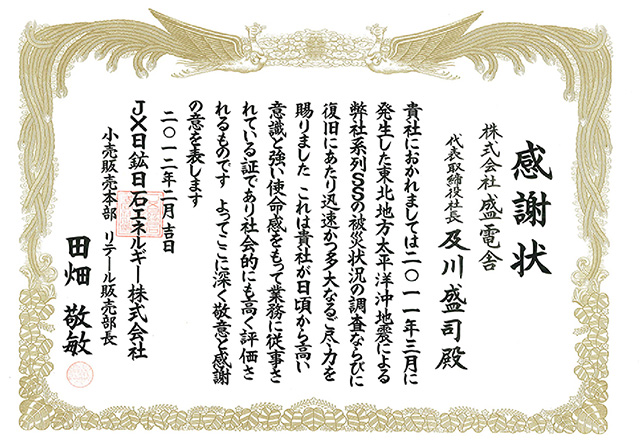 感謝状
株式会社盛電舎
代表取締役社長 及川盛司殿
貴社におかれましては二〇一一年三月に
発生した東北地方太平洋沖地震による
弊社系列SSの被災状況の調査ならびに
復旧にあたり迅速かつ多大なるご尽力を
賜りました これは貴社が日頃から高い
意識と強い使命感をもって業務に従事さ
れている証であり社会的にも高く評価さ
れるものです よってここに深く敬意と感謝
の意を表します
二〇一二年二月吉日
JX日鉱日石エネルギー株式会社
小売販売本部 リテール販売部長
田畑 敬敏